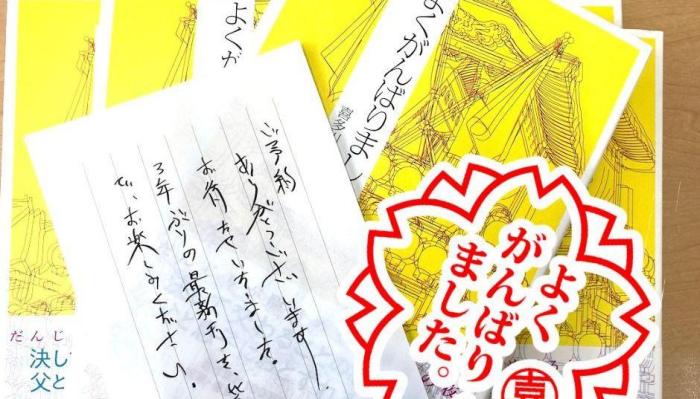 よくが
よくがんばりまし
喜多
ご予約
ありがとうございます。
お待たせいたしました。
3年ぶりの最新刊を、ぜ
ひ、お楽しみください。
よく
がんばり
ました。
喜
だんじ
決し
父と